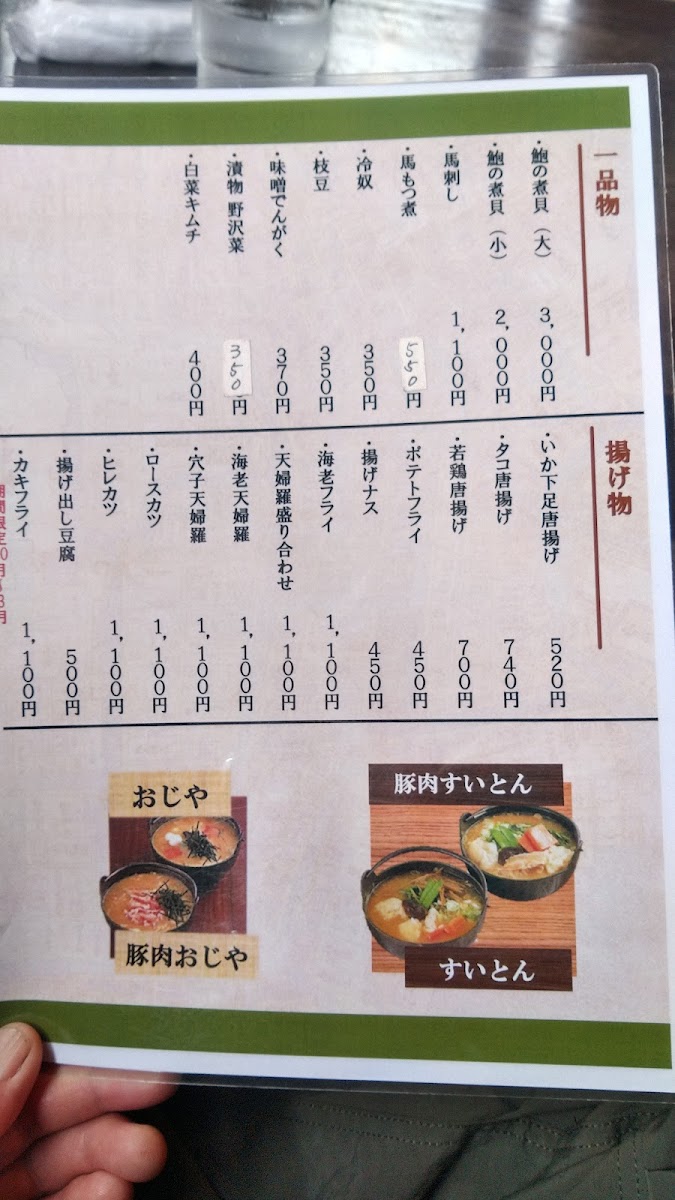 一品物
・鮑の煮貝（大） 3,000円
・鮑の煮貝（小） 2,000円
・馬刺し 1,100円
・馬もつ煮 550円
・冷奴 350円
・枝豆 350円
・味噌でんがく 370円
・漬物 野沢菜 350円
・白菜キムチ 400円
揚げ物
・いか下足唐揚げ 520円
・タコ唐揚げ 740円
・若鶏唐揚げ 700円
・ポテトフライ 450円
・揚げナス 450円
・海老フライ 1,100円
・天婦羅盛り合わせ 1,100円
・海老天婦羅 1,100円
・穴子天婦羅 1,100円
・ロースカツ 1,100円
・ヒレカツ 1,100円
・揚げ出し豆腐 500円
・カキフライ 1,100円
豚肉すいとん
すいとん
おじや
豚肉おじや